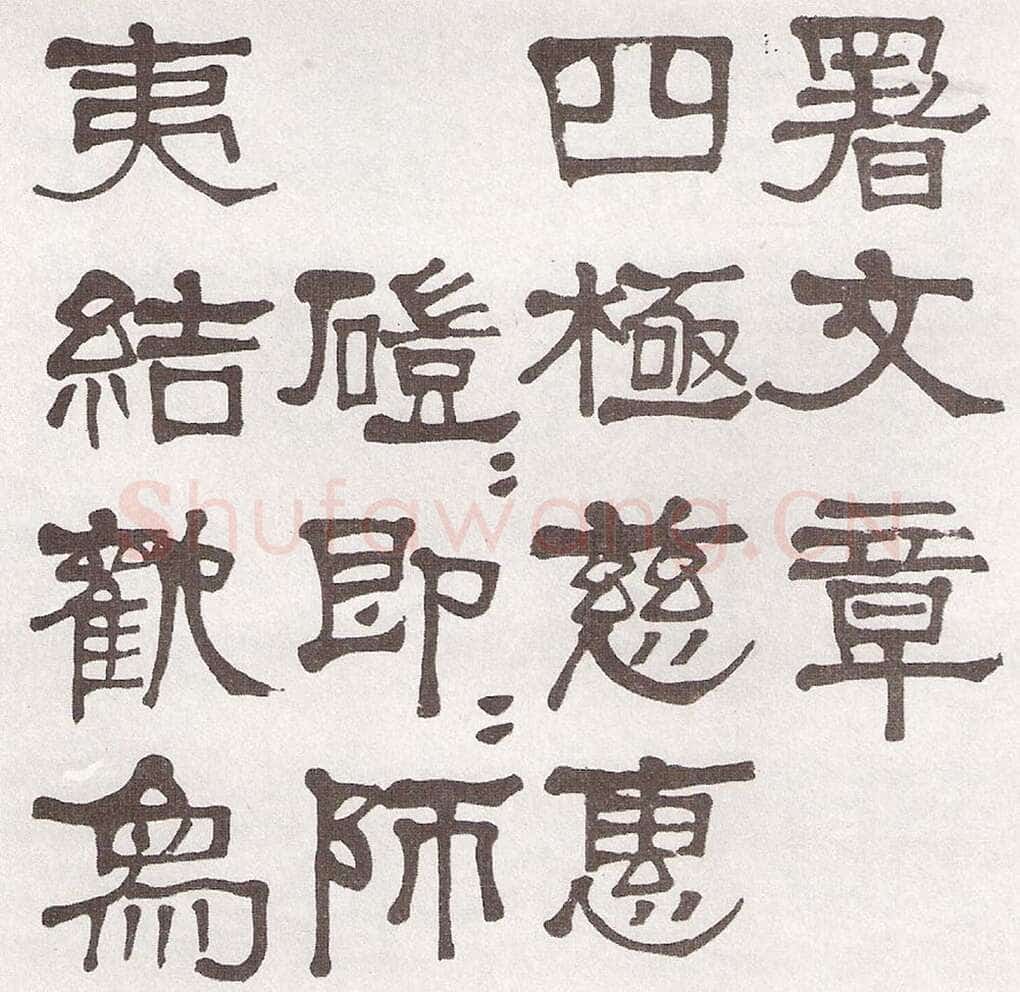 署文章
四極慈惠
磑〻即〻師
夷結歡為
Shufawang.CN